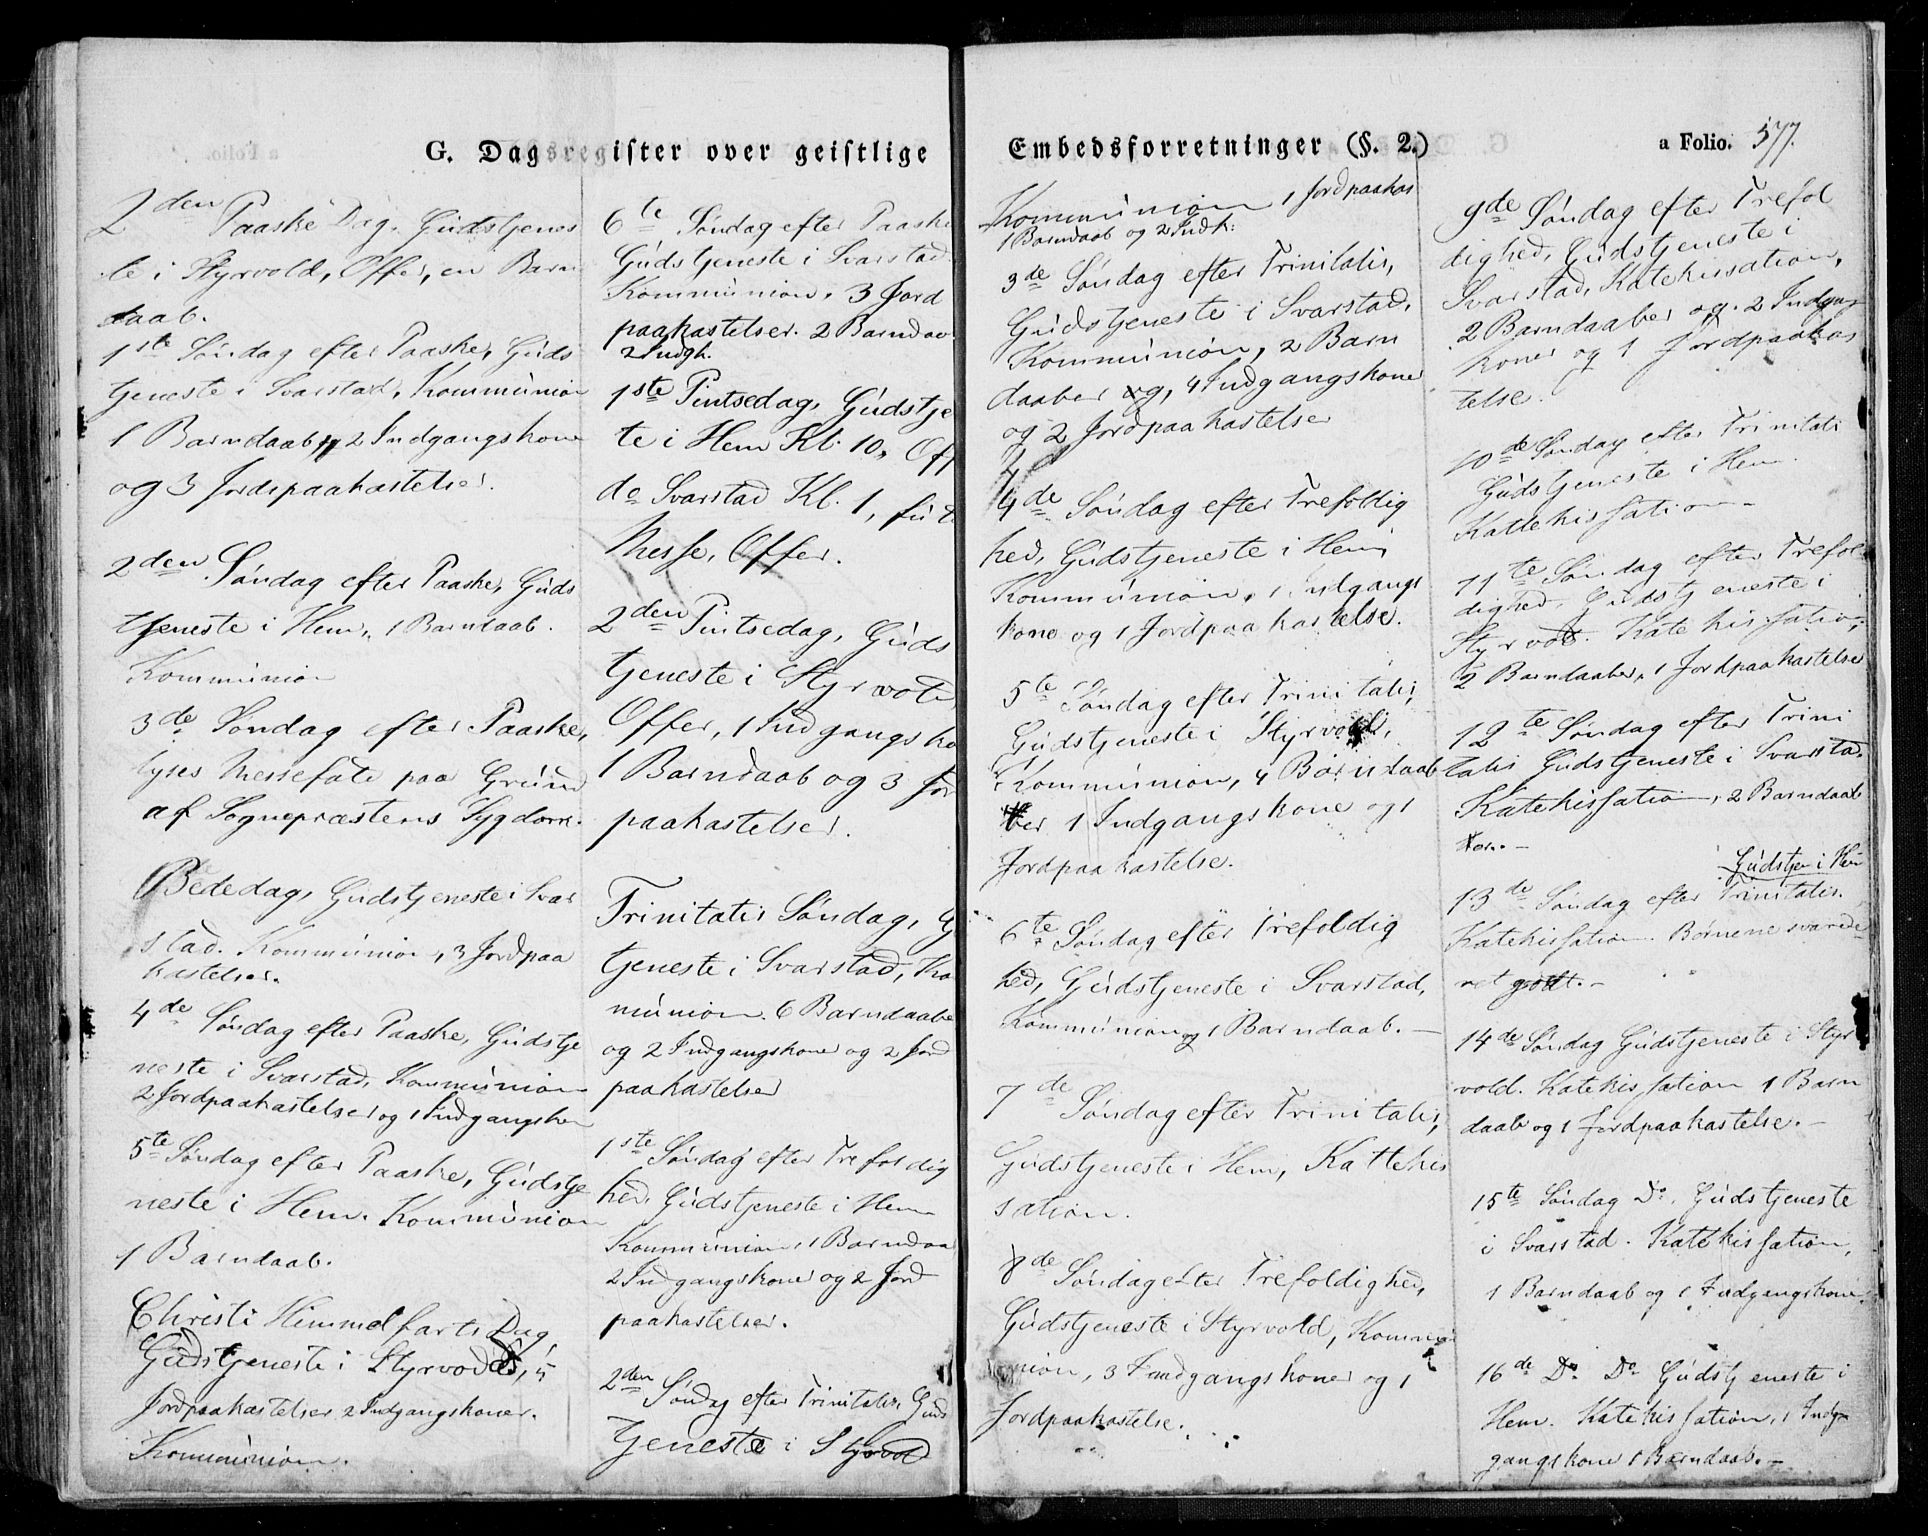 G. Dagsregister over geistlige
2den Paaske Dag. Gudstjenes
te i Styrvold, Offer, en Barn
daab.
1ste Søndag efter Paaske, Guds
tjeneste i Svarstad, Kommunion
1 Barndaab, 2 Indgangskone
og 3 Jordspaakastelser.
2den Søndag efter Paaske, Guds
tjeneste i Hem, 1 Barndaab.
Kommunion
3de Søndag efter Paaske,
lyses Messefald paa Grund
af Sognepræstens Sygdom.
Bededag, Gudstjeneste i Svar
stad. Kommunion, 3 Jordpaa
kastelser.
4de Søndag efter Paaske, Gudstje
neste i Svarstad, Kommunion
2 Jordpaakastelser og 1 Indgangskon
5te Søndag efter Paaske, Gudstje
neste i Hem. Kommunion
1 Barndaab.
Christi Himmelfarts Dag,
Gudstjeneste i Styrvold, 5
Jordpaakastelser 2 Indgangskoner.
Kommunion.
6te Søndag efter Paaske
Gudstjeneste i Svarstad.
Kommunion, 3 Jord
paakastelser. 2 Barndaa
2 Indgk.
1ste Pintsedag, Gudstje
te i Hem Kl. 10, Off
do Svarstad Kl. 1,
Messe, Offer.
2den Pintsedag, Guds
tjeneste i Styrvold
Offer, 1 Indgangsko
1 Barndaab og 3 Jor
paakastelser.
Trinitatis Søndag, G
tjeneste i Svarstad, Ko
munion. 6 Barndaabe
og 2 Indgangskoner og 2 Jord
paakastelser
1ste Søndag efter Trefoldig
hed, Gudstjeneste i Hem
Kommunion, 1 Barndaa
2 Indgangskoner og 2 Jord
paakastelser.
2den Søndag efter Trinitatis, Guds
tjeneste i Styrvold
Embedsforretninger (§. 2.)
a Folio. 577.
Kommunion 1 Jordpaakas
1 Barndaab og 2 Indk:
3de Søndag efter Trinitatis,
Gudstjeneste i Svarstad,
Kommunion, 2 Barn
daaber og, 4 Indgangskoner
og 2 Jordpaakastelser
4de Søndag efter Trefoldig
hed, Gudstjeneste i Hem
Kommunion, 1 Indgangs
kone og 1 Jordpaakastelse.
5te Søndag efter Trinitatis,
Gudstjeneste i Styrvold,
Kommunion, 4 Barndaab
ber 1 Indgangskone og 1
Jordpaakastelse.
6te Søndag efter Trefoldig
hed, Gudstjeneste i Svarstad,
Kommunion og 1 Barndaab. —
7de Søndag efter Trinitatis,
Gudstjeneste i Hem, Kattekis
sation.
8de Søndag efter Trefoldighed,
Gudstjeneste i Styrvold, Kommu
nion, 3 Indgangskoner og 1
Jordpaakastelse.
9de Søndag efter Trefol
dighed, Gudstjeneste i
Svarstad, Katekissation,
2 Barndaaber og 2 Indgangs
koner og 1 Jordpaakas
telse.
10de Søndag efter Trinitatis
Gudstjeneste i Hem.
Kattekissation —
11te Søndag efter Trefol
dighed, Gudstjeneste i
Styrvold. Katekissation,
2 Barndaaber, 1 Jordpaakastelse
12te Søndag efter Trini
tatis Gudstjeneste i Svarstad.
Katekissation, 2 Barndaab
ber. —
Gudstjen i Hem
13de Søndag efter Trinitatis.
Katekissation. Børnene svarede
ret godt. —
14de Søndag Gudstjeneste i Styr
vold. Katekissation 1 Barn
daab og 1 Jordpaakastelse. —
15te Søndag Do. Gudstjeneste
i Svarstad. Katekissation,
1 Barndaab og 1 Indgangskone.
16de Do Do Gudstjeneste i
Hem. Katekissation, 1 Ind
gangskone 1 Barndaab. —